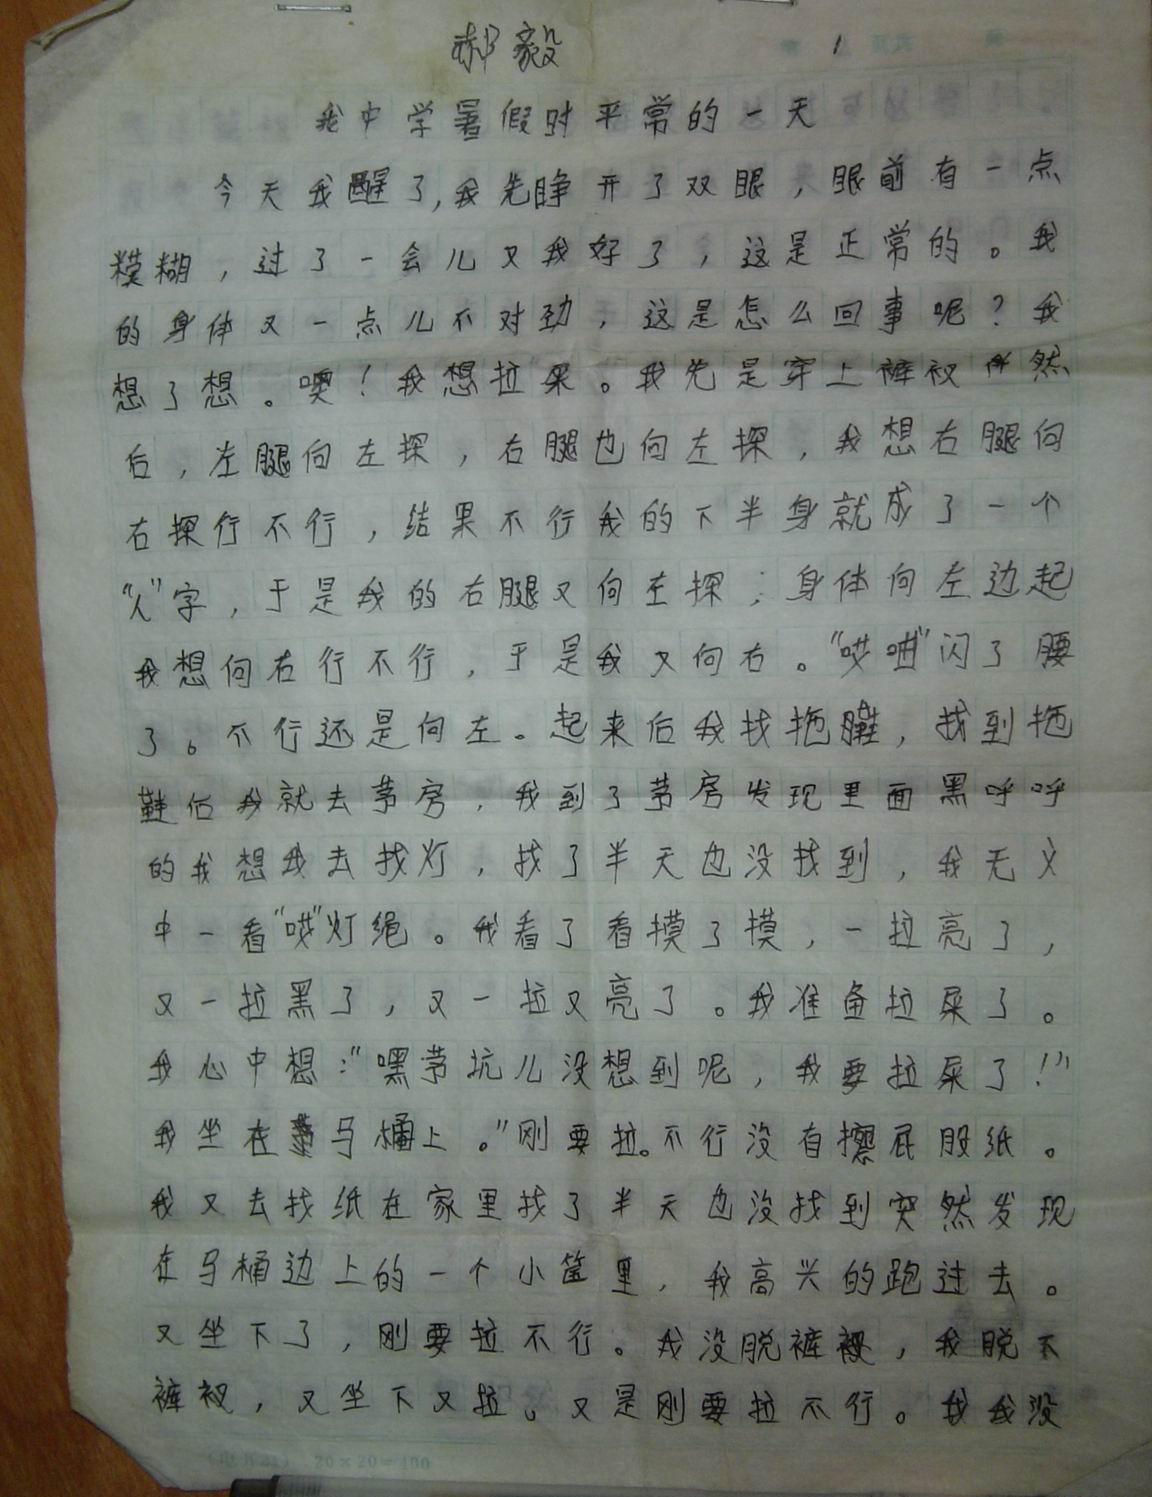 郝毅
1
我中学暑假时平常的一天
今天我醒了,我先睁开了双眼,眼前有一点
糢糊,过了一会儿又我好了,这是正常的。我
的身体又一点儿不对劲,这是怎么回事呢?我
想了想。噢!我想拉屎。我先是穿上裤衩 然
后,左腿向左探,右腿也向左探,我想右腿向
右探行不行,结果不行我的下半身就成了一个
“人”字,于是我的右腿又向左探;身体向左边起
我想向右行不行,于是我又向右。“哎呦”闪了腰
了。不行还是向左。起来后我找拖鞋,找到拖
鞋后我就去茅房,我到了茅房发现里面黑呼呼
的我想我去找灯,找了半天也没找到,我无义
中一看“哎”灯绳。我看了看摸了摸,一拉亮了,
又一拉黑了,又一拉又亮了。我准备拉屎了。
我心中想:“嘿茅坑儿没想到呢,我要拉屎了!”
我坐在马桶上。”刚要拉。不行没有擦屁股纸。
我又去找纸在家里找了半天也没找到突然发现
在马桶边上的一个小筐里,我高兴的跑过去。
又坐下了,刚要拉不行。我没脱裤衩,我脱下
裤衩,又坐下又拉。又是刚要拉不行。我我没
20×20=400